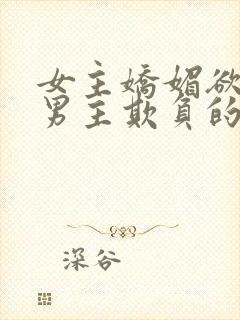 女主嬌媚欲
男主欺負的
深谷